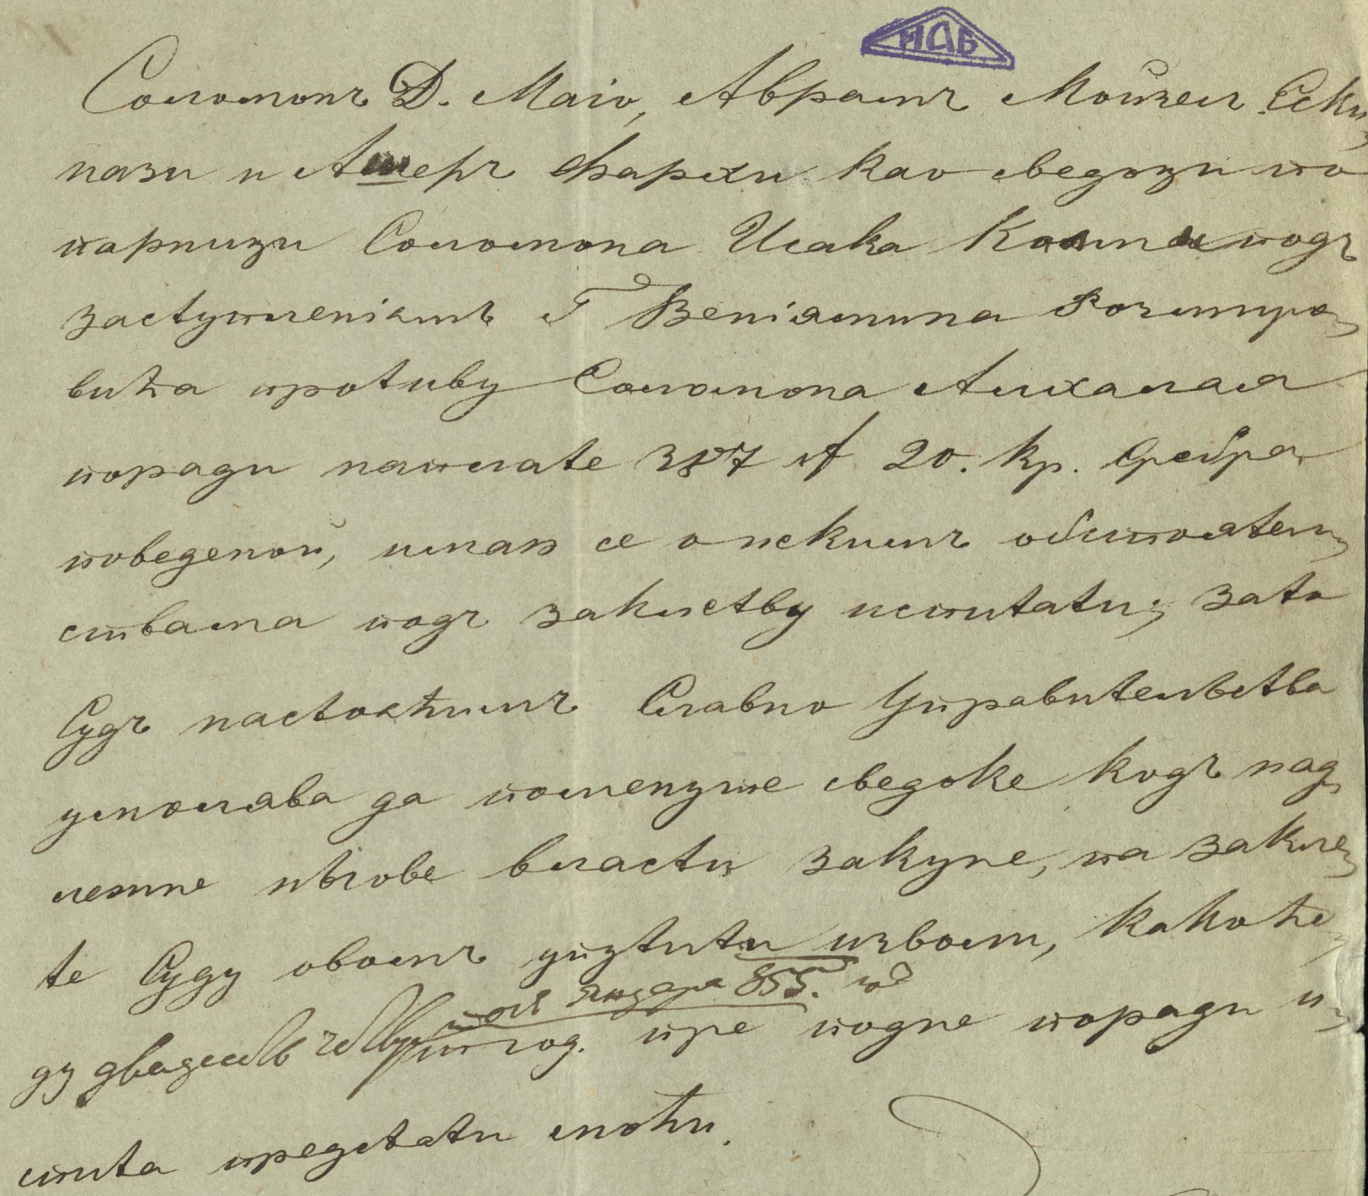 ИАБ
Соломонъ Д. Маіо, Аврамъ Мойзеш Ески
нази и Ашеръ Фархи као сведоци по
парници Соломона Исака Коена подъ
заступленіемъ Г Веніамина
вића противу Соломона Алкалая
поради наплате 387 f 20. кр. Сребра
поведеной, имаю се о некимъ обстоятел
ствама подъ заклетву испитати; зато
Судъ настоећимъ Славно Управителства
умолява да поменуте сведоке кодъ над
лежне ньiове власти закуне, па закле
те Суду овомъ упутити изволи, како ће
ду двадесетъ четвр тогъ Януара 855. год
тог. пре подне поради и
спита предстати моћи.